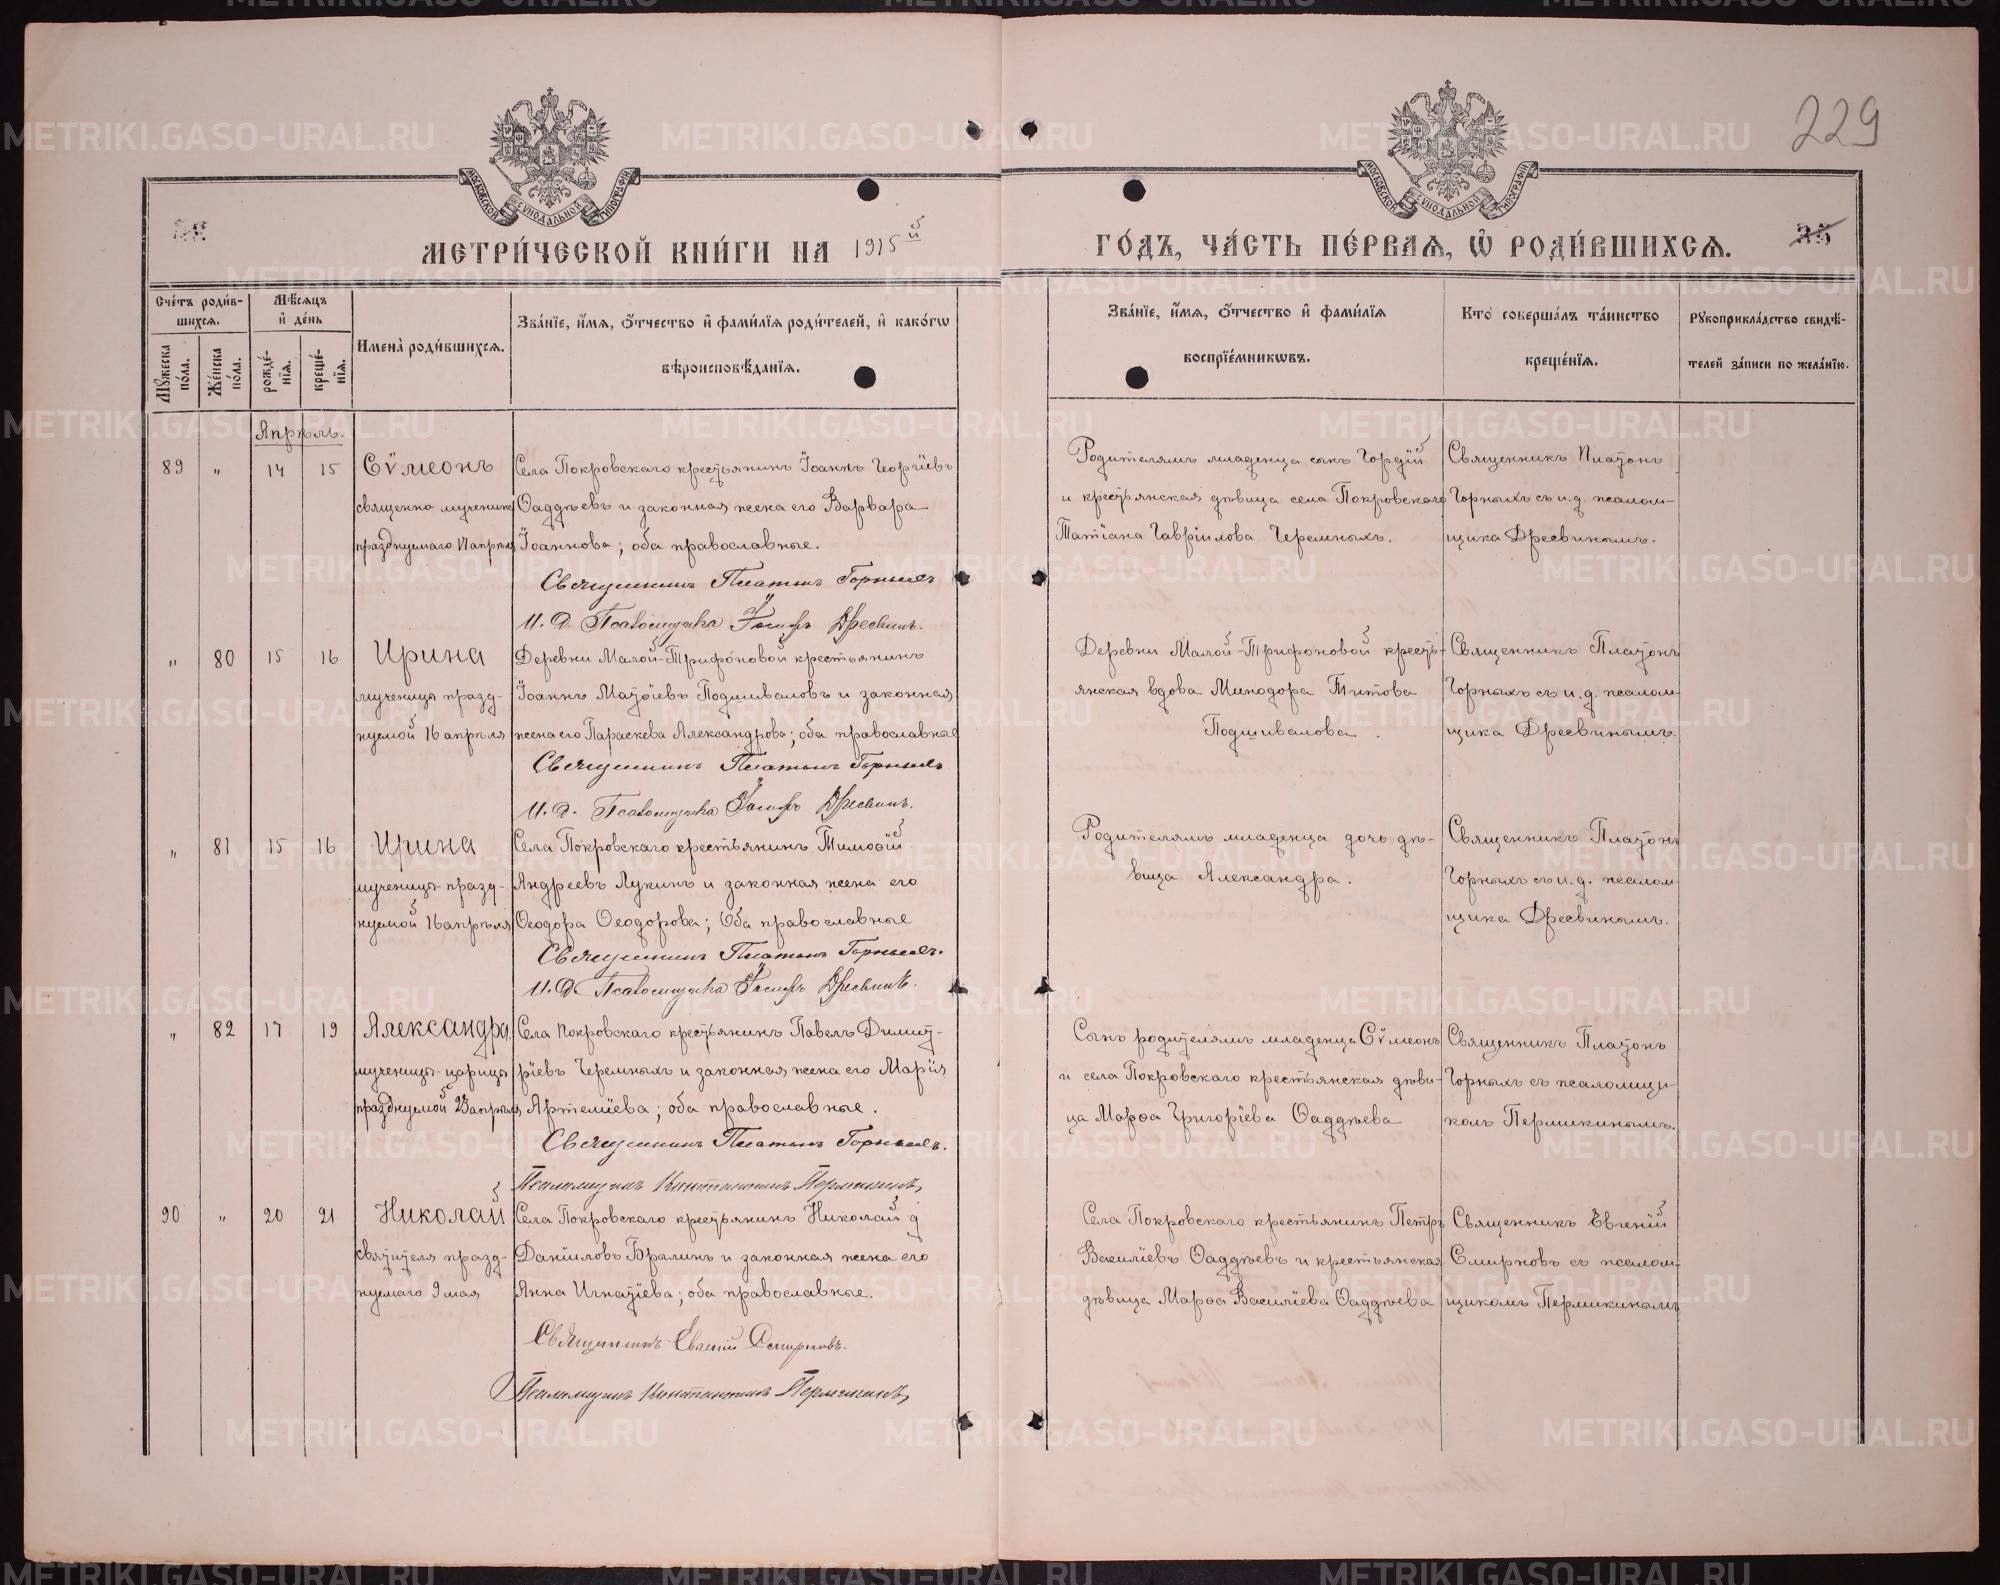 229
МОСКОВСКОЙ СѴНОДАЛЬНОЙ ТИПОГРАФІИ
МОСКОВСКОЙ СѴНОДАЛЬНОЙ ТИПОГРАФІИ
МЕТРИ́ЧЕСКОЙ КНИ́ГИ НА 1915й ГО́ДЪ, ЧА́СТЬ ПЕ́РВАѦ, Ѡ҆ РОДИ́ВШИХСѦ. 35
Сче́тъ роди́в-
шихсѧ.
Мѣ́сѧцъ
и҆ де́нь
Мꙋ́жеска по́ла.
Же́нска по́ла.
рожде́-
нїѧ.
креще́-
нїѧ.
Имена̀ роди́вшихсѧ.
Зва́нїе, и҆́мѧ, ѻ҆́тчество и҆ фами́лїѧ роди́телей, и҆ како́гѡ
вѣроисповѣ́данїѧ.
Зва́нїе, и҆́мѧ, ѻ҆́тчество и҆ фами́лїѧ
воспрїе́мникѡвъ.
Кто̀ соверша́лъ та́инство
креще́нїѧ.
Рꙋкоприкла́дство свидѣ́-
телей за́писи по жела́нїю.
Апрѣль.
89 „ 14 15 Сѵмеонъ
священно мученика
празднуемаго 17 апрѣля
Села Покровскаго крестьянинъ Іоаннъ Георгіевъ
Ѳаддѣевъ и законная жена его Варвара
Іоаннова; оба православные.
Священникъ Платонъ Горныхъ
И. д. Псаломщика Іосифъ Дресвинъ.
Родителямъ младенца сынъ Гордій
и крестьянская дѣвица села Покровскаго
Татіана Гавріилова Черемныхъ.
Священникъ Платонъ
Горныхъ съ и. д. псалом-
щика Дресвинымъ.
„ 80 15 16 Ирина
мученицы празд-
нуемой 16 апрѣля
Деревни Малой-Трифоновой крестьянинъ
Іоаннъ Матѳіевъ Подшиваловъ и законная
жена его Параскева Александрова; оба православные
Священникъ Платонъ Горныхъ
И. д. Псаломщика Іосифъ Дресвинъ.
Деревни Малой-Трифоновой кресть-
янская вдова Минодора Титова
Подшивалова.
Священникъ Платонъ
Горныхъ съ и. д. псалом-
щика Дресвинымъ.
„ 81 15 16 Ирина
мученицы празд-
нуемой 16 апрѣля
Села Покровскаго крестьянинъ Тимоѳій
Андреевъ Лукинъ и законная жена его
Ѳеодора Ѳеодорова; Оба православные
Священникъ Платонъ Горныхъ.
И. д. Псаломщика Іосифъ Дресвинъ.
Родителямъ младенца дочь дѣ-
вица Александра.
Священникъ Платонъ
Горныхъ съ и. д. псалом-
щика Дресвинымъ.
„ 82 17 19 Александра
мученицы-царицы
празднуемой 23 апрѣля
Села Покровскаго крестьянинъ Павелъ Димит-
ріевъ Черемныхъ и законная жена его Марія
Артеміева; оба православные.
Священникъ Платонъ Горныхъ.
Псаломщикъ Константинъ Пермикинъ
Сынъ родителямъ младенца Сѵмеонъ
и села Покровскаго крестьянская дѣви-
ца Марѳа Григоріева Ѳаддѣева
Священникъ Платонъ
Горныхъ съ псаломщи-
комъ Пермикинымъ.
90 „ 20 21 Николай
святителя празд-
нуемаго 9 мая
Села Покровскаго крестьянинъ Николай
Даніиловъ Бралинъ и законная жена его
Анна Игнатіева; оба православные.
Священникъ Евгеній Смирновъ.
Псаломщикъ Константинъ Пермикинъ
Села Покровскаго крестьянинъ Петръ
Василіевъ Ѳаддѣевъ и крестьянская
дѣвица Марѳа Василіева Ѳаддѣева
Священникъ Евгеній
Смирновъ съ псалом-
щикомъ Пермикинымъ
METRIKI.GASO-URAL.RU